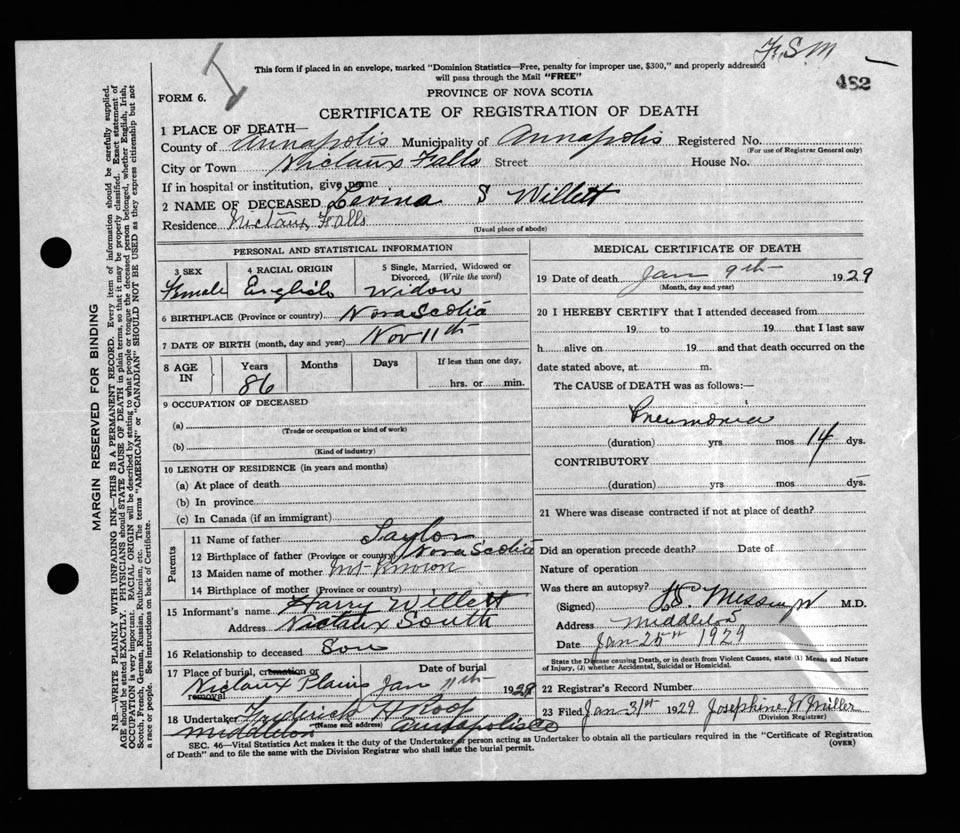 F. S. M
This form if placed in an envelope, marked "Dominion Statistics—Free, penalty for improper use, $300," and properly addressed
will pass through the Mail "FREE"
482
PROVINCE OF NOVA SCOTIA
FORM 6.
CERTIFICATE OF REGISTRATION OF DEATH
1 PLACE OF DEATH—
County of Annapolis Municipality of Annapolis Registered No.
(For use of Registrar General only)
City or Town Nictaux Falls Street House No.
If in hospital or institution, give name
2 NAME OF DECEASED Levina S Willett
Residence Nictaux Falls
(Usual place of abode)
PERSONAL AND STATISTICAL INFORMATION
3 SEX 4 RACIAL ORIGIN 5 Single, Married, Widowed or
Divorced. (Write the word)
Female English Widow
6 BIRTHPLACE (Province or country) Nova Scotia
7 DATE OF BIRTH (month, day and year) Nov 11th
8 AGE IN Years Months Days If less than one day,
86 hrs. or min.
9 OCCUPATION OF DECEASED
(a)
(Trade or occupation or kind of work)
(b)
(Kind of industry)
10 LENGTH OF RESIDENCE (in years and months)
(a) At place of death
(b) In province
(c) In Canada (if an immigrant)
Parents
11 Name of father Saylor
12 Birthplace of father (Province or country) Nova Scotia
13 Maiden name of mother not known
14 Birthplace of mother (Province or country)
15 Informant's name Harry Willett
Address Nictaux South
16 Relationship to deceased Son
17 Place of burial, cremation or removal Date of burial
Nictaux Plains Jan 11th 1929
18 Undertaker Frederick A Roop
(Name and address)
Middleton Annapolis Co
MEDICAL CERTIFICATE OF DEATH
19 Date of death Jan 9th 1929
(Month, day and year)
20 I HEREBY CERTIFY that I attended deceased from
19 to 19 that I last saw
h alive on 19 and that death occurred on the
date stated above, at m.
The CAUSE of DEATH was as follows:—
Pneumonia
(duration) yrs. mos 14 dys.
CONTRIBUTORY
(duration) yrs. mos dys.
21 Where was disease contracted if not at place of death?
Did an operation precede death? Date of
Nature of operation
Was there an autopsy?
(Signed) M.D.
Address Middleton
Date Jan 25th 1929
State the Disease causing Death, or in death from Violent Causes, state (1) Means and Nature
of Injury, (2) whether Accidental, Suicidal or Homicidal.
22 Registrar's Record Number
23 Filed Jan 31st 1929 Josephine W Miller
(Division Registrar)
SEC. 46—Vital Statistics Act makes it the duty of the Undertaker or person acting as Undertaker to obtain all the particulars required in the "Certificate of Registration
of Death" and to file the same with the Division Registrar who shall issue the burial permit. (OVER)
MARGIN RESERVED FOR BINDING
N.B.—WRITE PLAINLY WITH UNFADING INK—THIS IS A PERMANENT RECORD. Every item of information should be carefully supplied.
AGE should be stated EXACTLY. PHYSICIANS should STATE CAUSE OF DEATH in plain terms, so that it may be properly classified. Exact statement of
OCCUPATION is very important. RACIAL ORIGIN will be described by stating to what people or tongue the deceased person belonged, whether English, Irish,
Scotch, French, German, Russian, Ruthenian, etc. The terms "AMERICAN" or "CANADIAN" SHOULD NOT BE USED as they express citizenship but not
a race or people. See instructions on back of Certificate.